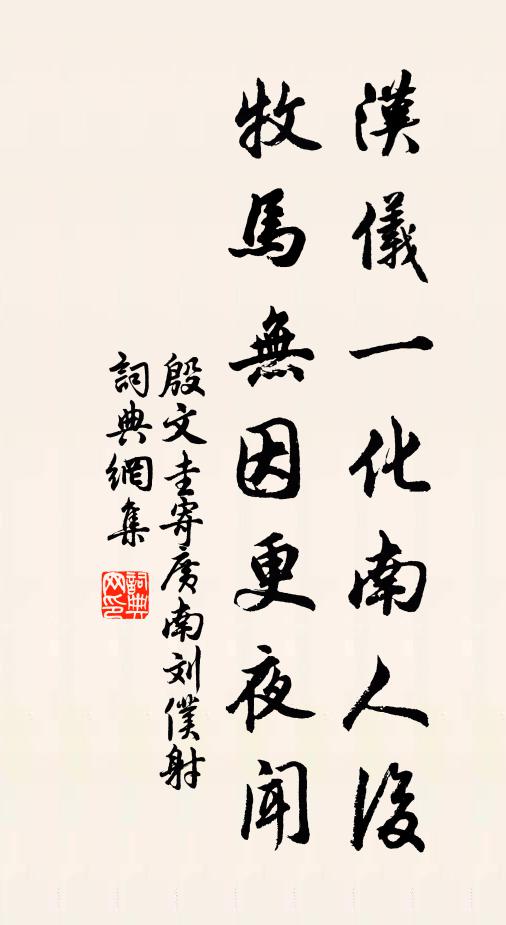 漢儀一化南人後
牧馬無因更夜聞
殷文圭寄廣南刘僕射
詞典網集
詞典网印